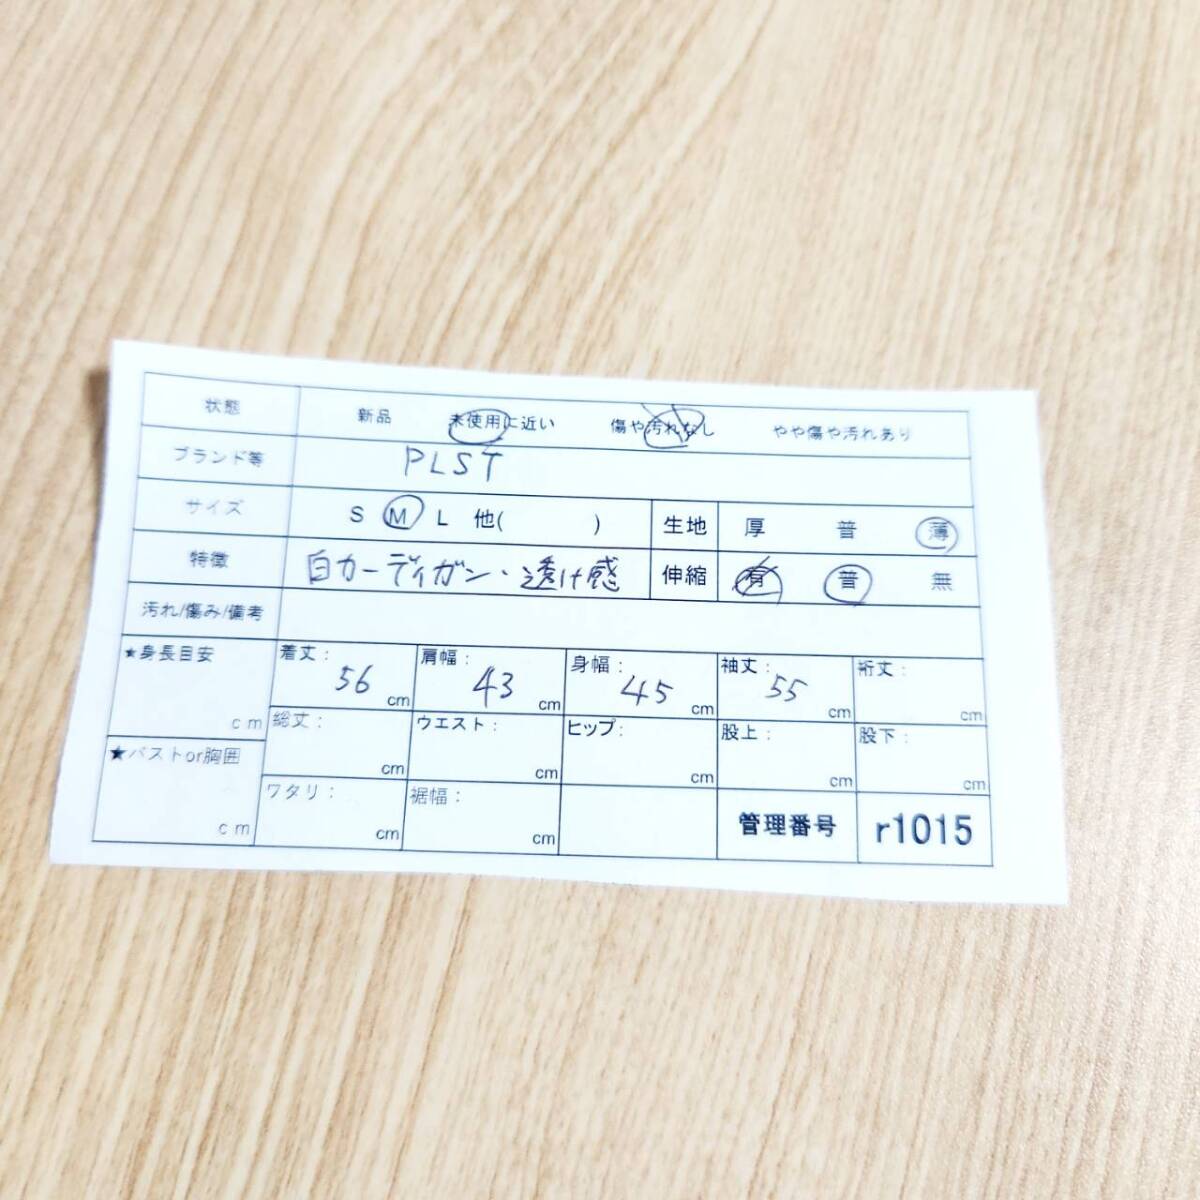 状態 新品 未使用に近い 傷や汚れなし やや傷や汚れあり
ブランド等 PLST
サイズ S M L 他( ) 生地 厚 普 薄
特徴 白カーディガン・透け感 伸縮 有 普 無
汚れ/傷み/備考
★身長目安 cm 着丈: 56 cm 肩幅: 43 cm 身幅: 45 cm 袖丈: 55 cm 裄丈: cm
総丈: cm ウエスト: cm ヒップ: cm 股上: cm 股下: cm
★バストor胸囲 cm ワタリ: cm 裾幅: cm 管理番号 r1015